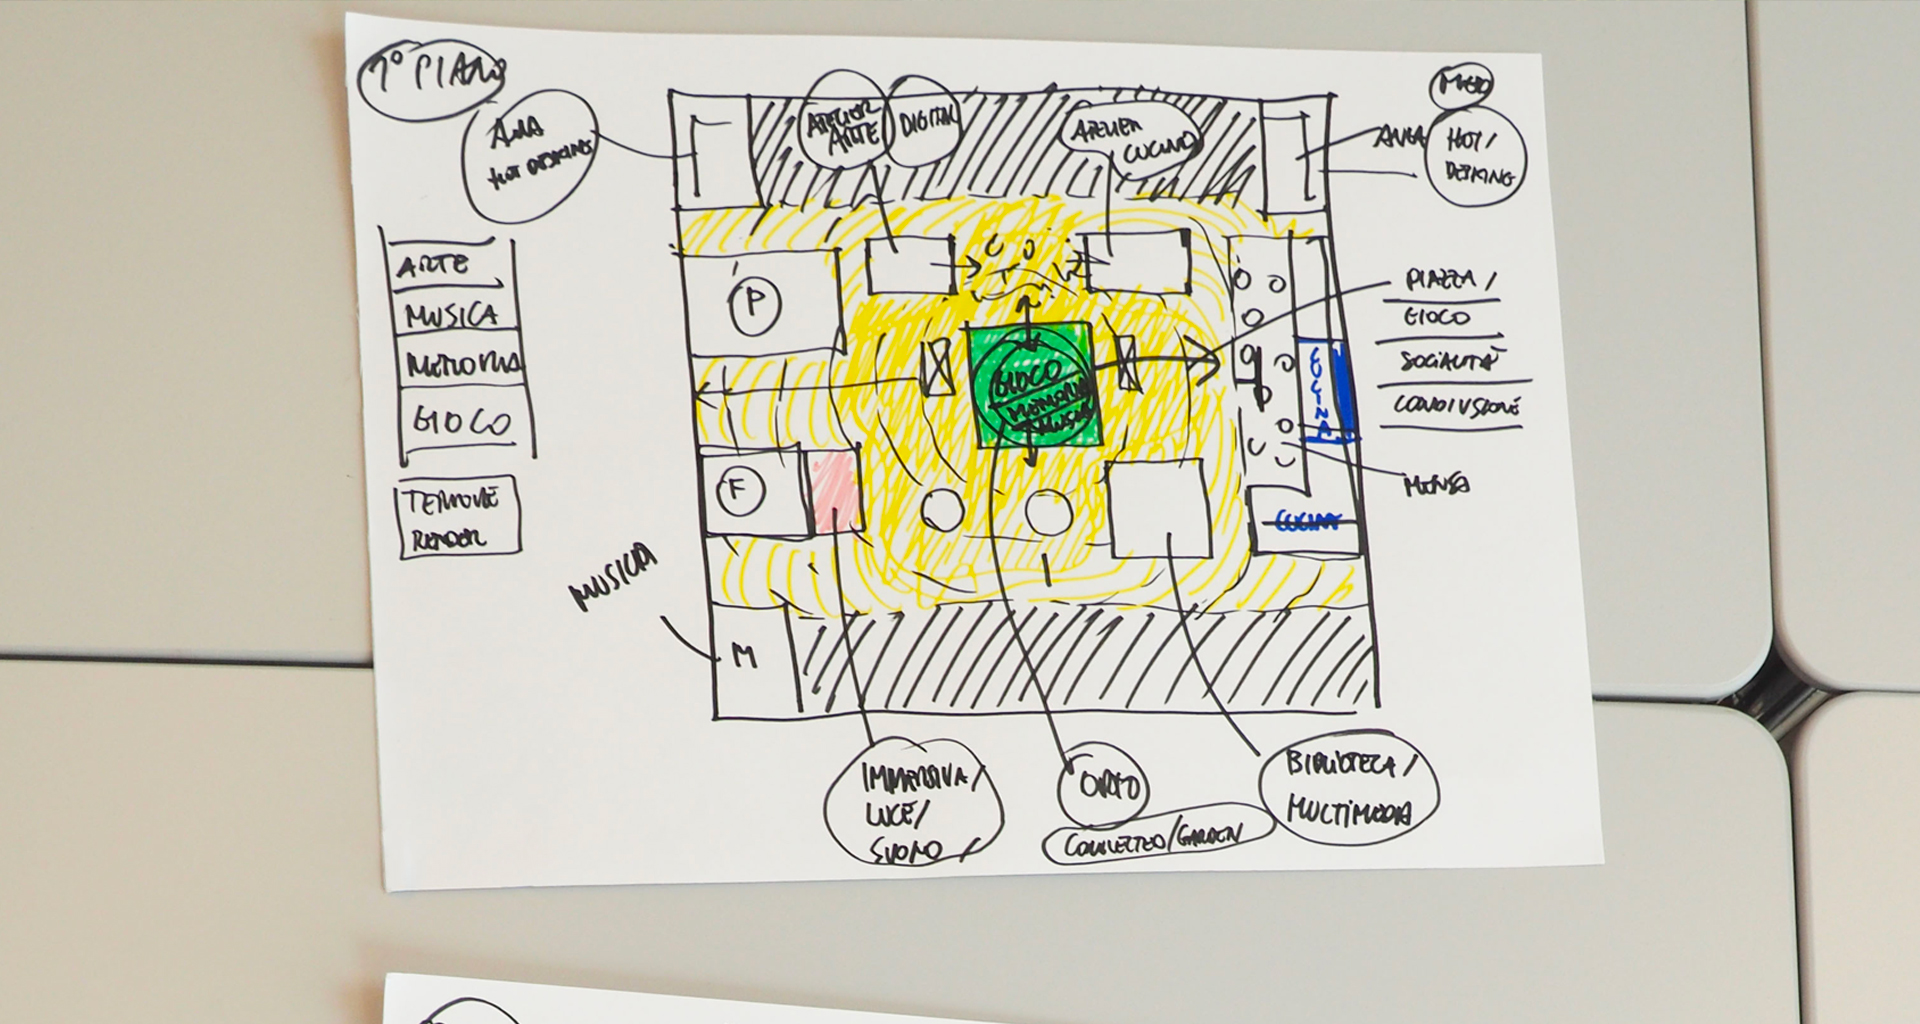 1° PIANO
HOT DESKING
ATELIER
ARTE
DIGITAL
ATELIER
AREA
HOT/
DESKING
ARTE
MUSICA
MEMORIA
GIOCO
P
F
M
MUSICA
GIOCO
MEMORIA
MUSICA
PIAZZA/
GIOCO
SOCIALITÀ
CONDIVISIONE
MENSA
CUCINA
CUCINA
IMMERSIVA/
LUCE/
SUONO/
ORTO
CONNECTED/GARDEN
BIBLIOTECA/
MULTIMEDIA
RENDER